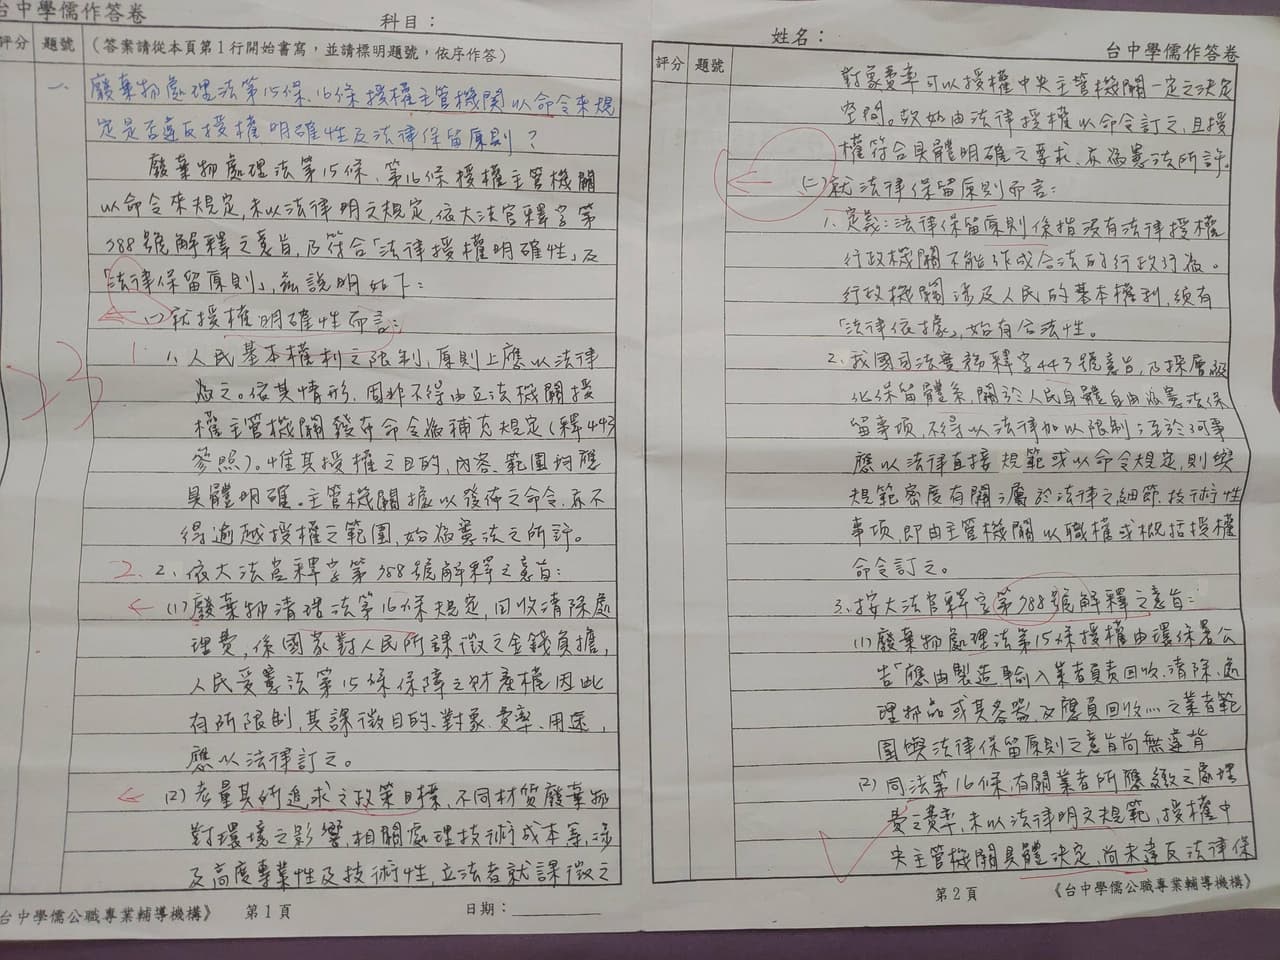 台中學儒作答卷
科目：
評分 題號 （答案請從本頁第1行開始書寫，並請標明題號，依序作答）
一、 廢棄物處理法第15條、16條授權主管機関以命令來規
定是否違反授權明確性及法律保留原則？
廢棄物處理法第15條、第16條授權主管機關
以命令來規定,未以法律明文規定,依大法官釋字第
788號解釋之意旨,乃符合「法律授權明確性」及
「法律保留原則」,茲說明如下：
(一)就授權明確性而言：
1、人民基本權利之限制,原則上應以法律
為之。依其情形,固非不得由立法機關授
權主管機關發布命令為補充規定(釋443
參照)。惟其授權之目的、內容、範圍均應
具體明確。主管機關據以發佈之命令,亦不
得逾越授權之範圍,始為憲法之所許。
2、依大法官釋字第788號解釋之意旨：
(1)廢棄物清理法第16條規定,回收清除處
理費,係國家對人民所課徵之金錢負擔,
人民受憲法第15條保障之財產權因此
有所限制,其課徵目的、對象、費率、用途,
應以法律訂之。
(2)考量其所追求之政策目標、不同材質廢棄物
對環境之影響,相關處理技術成本等,涉
及高度專業性及技術性,立法者就課徵之
台中學儒公職專業輔導機構》 第1頁 日期：
23
姓名：
台中學儒作答卷
評分 題號
對象費率可以授權中央主管機關一定之決定
空間。故如由法律授權以命令訂之,且授
權符合具體明確之要求,亦為憲法所許。
(二)就法律保留原則而言：
1、定義：法律保留原則係指沒有法律授權
行政機關不能作成合法的行政行為。
行政機關涉及人民的基本權利,須有
「法律依據」,始有合法性。
2、我國司法實務釋字443號意旨,乃採層級
化保留體系,關於人民身體自由為憲法保
留事項,不得以法律加以限制；至於何事
應以法律直接規範或以命令規定,則與
規範密度有關；屬於法律之細節、技術性
事項,即由主管機關以職權或概括授權
命令訂之。
3、按大法官釋字第788號解釋之意旨：
(1)廢棄物處理法第15條授權由環保署公
告「應由製造、輸入業者負責回收、清除、處
理物品或其容器,及應負回收...之業者範
圍與法律保留原則之意旨尚無違背
(2)同法第16條,有關業者所應繳之處理
費之費率,未以法律明文規範,授權中
央主管機關具體決定,尚未違反法律保
第2頁 《台中學儒公職專業輔導機構》